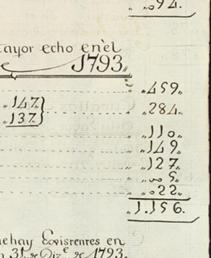 „094.
ayor echo en el
1793.
„459.
„147.
„137.
„284.
„110.
„149.
„127.
„005.
„022.
1.156.
ue hay Existentes en
n 31. de Diz.ᵉ de 1793.